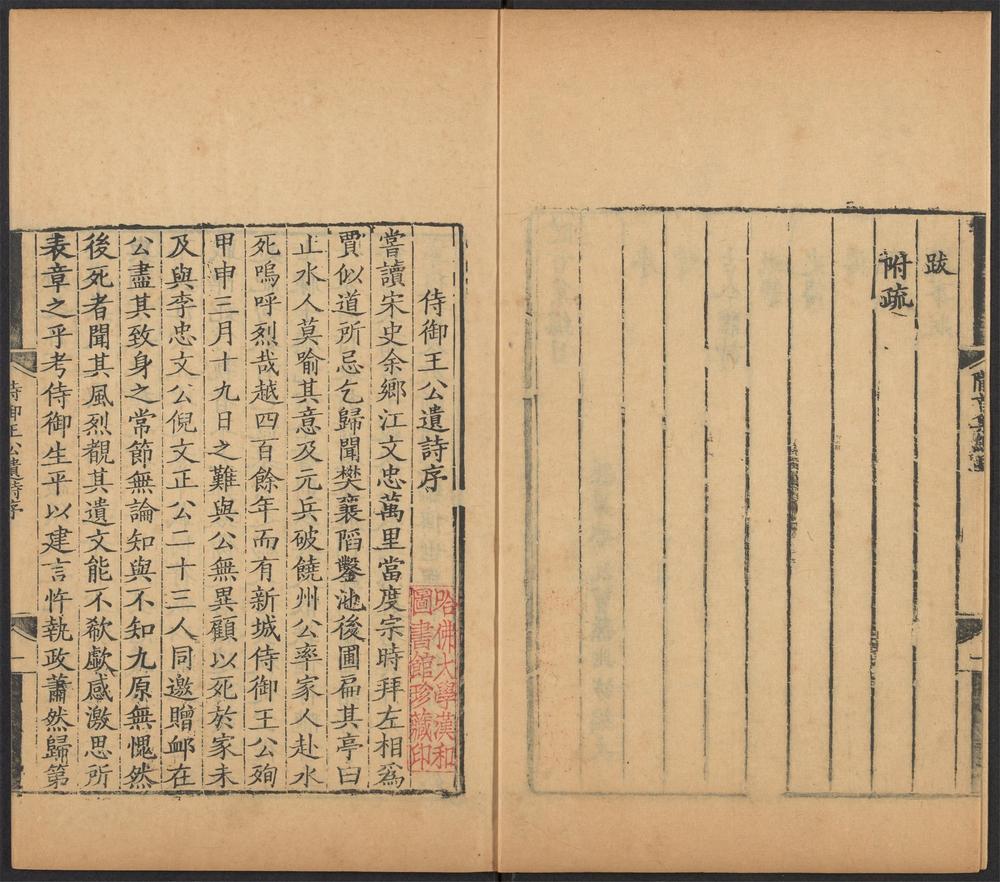 跋
附疏
侍御王公遺詩序
嘗讀宋史余鄉江文忠萬里當度宗時拜左相爲
賈似道所忌乞歸聞樊襄陷鑿池後圃扁其亭曰
止水人莫喻其意及元兵破饒州公率家人赴水
死嗚呼烈哉越四百餘年而有新城侍御王公殉
甲申三月十九日之難與公無異顧以死於家未
及與李忠文公倪文正公二十三人同邀贈䘏在
公盡其致身之常節無論知與不知九原無愧然
後死者聞其風烈覩其遺文能不欷歔感激思所
表章之乎考侍御生平以建言忤執政蕭然歸第
侍御王公遺詩序
一
哈佛大學漢和
圖書館珍藏印